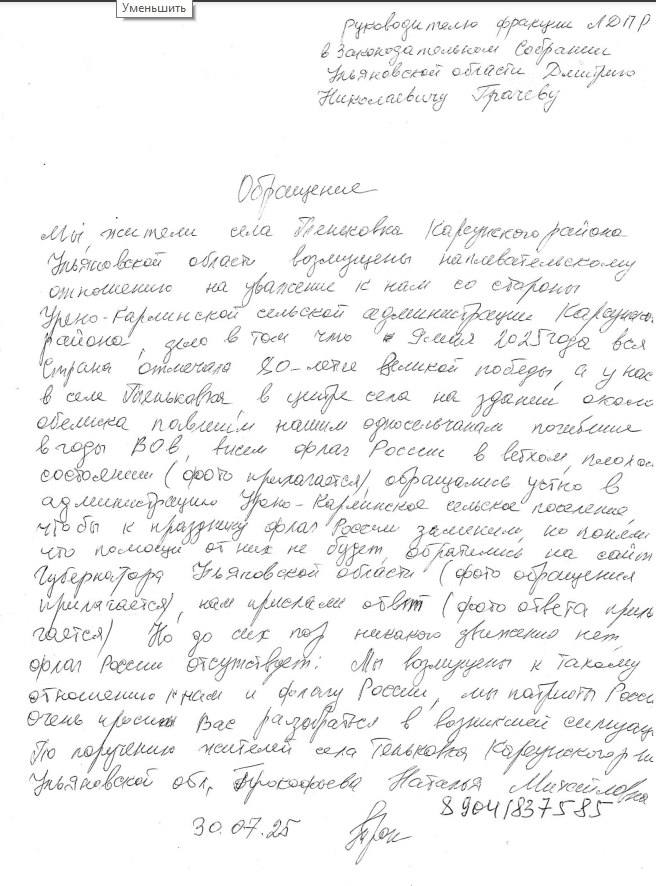 Уменьшить
Руководителю фракции ЛДПР
в Законодательном Собрании
Ульяновской области Дмитрию
Николаевичу Грачеву
Обращение
Мы, жители села Теньковка Карсунского района
Ульяновской области возмущены наплевательскому
отношению на уважение к нам со стороны
Урено-Карлинской сельской администрации Карсунско
района, дело в том что 9 мая 2025 года вся
страна отмечала 80-летие великой победы, а у нас
в селе Теньковка в центре села на здании, около
обелиска павшим нашим односельчанам погибшие
в годы ВОВ, висел флаг России в ветхом, плохом
состоянии (фото прилагается), обращались устно в
администрацию Урено-Карлинское сельское поселение,
чтобы к празднику флаг России заменили, но поняли
что помощи от них не будет, обратились на сайт
Губернатора Ульяновской области (фото обращения
прилагается), нам прислали ответ (фото ответа прила
гается) Но до сих пор никакого движения нет,
флаг России отсутствует. Мы возмущены к такому
отношению к нам и флагу России, мы патриоты Росси
Очень просим Вас разобраться в возникшей ситуац
По поручению жителей села Теньковка Карсунского р-на
Ульяновской обл, Прокофьева Наталья Михайловна
89041837585
30.07.25 Прок